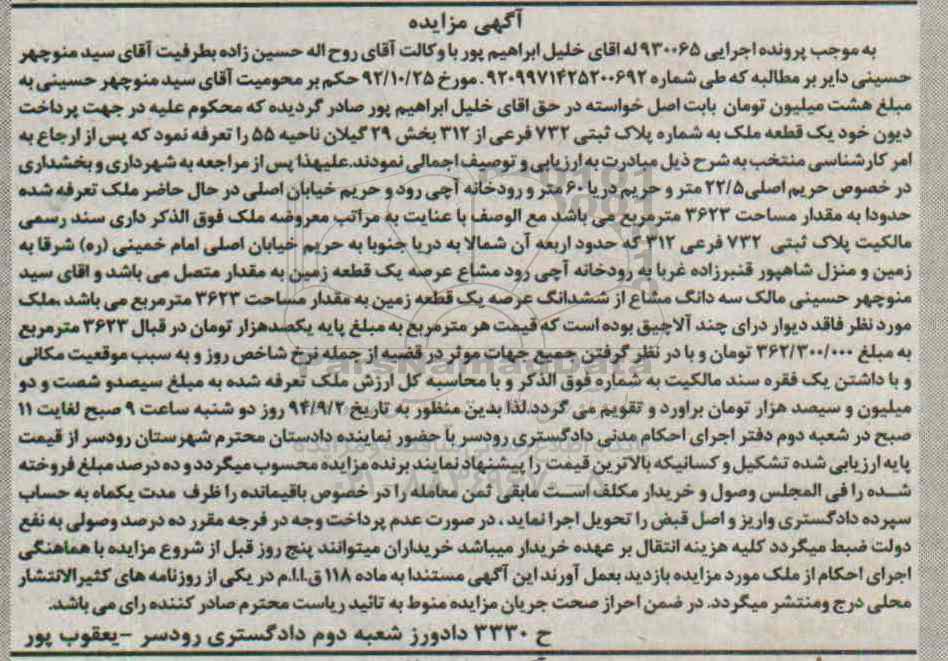 آگهی مزایده
به موجب پرونده اجرایی ۹۳۰۰۶۵ له اقای خلیل ابراهیم پور با وکالت آقای روح اله حسین زاده بطرفیت آقای سید منوچهر
حسینی دایر بر مطالبه که طی شماره ۹۲۰۹۹۷۱۴۲۵۲۰۰۶۹۲. مورخ ۹۲/۱۰/۲۵ حکم بر محومیت آقای سید منوچهر حسینی به
مبلغ هشت میلیون تومان بابت اصل خواسته در حق اقای خلیل ابراهیم پور صادر گردیده که محکوم علیه در جهت پرداخت
دیون خود یک قطعه ملک به شماره پلاک ثبتی ۷۳۲ فرعی از ۳۱۲ بخش ۲۹ گیلان ناحیه ۵۵ را تعرفه نمود که پس از ارجاع به
امر کارشناسی منتخب به شرح ذیل مبادرت به ارزیابی و توصیف اجمالی نمودند.علیهذا پس از مراجعه به شهرداری و بخشداری
در خصوص حریم اصلی ۲۲/۵ متر و حریم دریا ۶۰ متر و رودخانه آچی رود و حریم خیابان اصلی در حال حاضر ملک تعرفه شده
حدودا به مقدار مساحت ۳۶۲۳ مترمربع می باشد مع الوصف با عنایت به مراتب معروضه ملک فوق الذکر داری سند رسمی
مالکیت پلاک ثبتی ۷۳۲ فرعی ۳۱۲ که حدود اربعه آن شمالا به دریا جنوبا به حریم خیابان اصلی امام خمینی (ره) شرقا به
زمین و منزل شاهپور قنبرزاده غربا به رودخانه آچی رود مشاع عرصه یک قطعه زمین به مقدار متصل می باشد و اقای سید
منوچهر حسینی مالک سه دانگ مشاع از ششدانگ عرصه یک قطعه زمین به مقدار مساحت ۳۶۲۳ مترمربع می باشد ،ملک
مورد نظر فاقد دیوار درای چند آلاچیق بوده است که قیمت هر مترمربع به مبلغ پایه یکصدهزار تومان در قبال ۳۶۲۳ مترمربع
به مبلغ ۳۶۲/۳۰۰/۰۰۰ تومان و با در نظر گرفتن جمیع جهات موثر در قضیه از جمله نرخ شاخص روز و به سبب موقعیت مکانی
و با داشتن یک فقره سند مالکیت به شماره فوق الذکر و با محاسبه کل ارزش ملک تعرفه شده به مبلغ سیصدو شصت و دو
میلیون و سیصد هزار تومان براورد و تقویم می گردد.لذا بدین منظور به تاریخ ۹۴/۹/۲ روز دو شنبه ساعت ۹ صبح لغایت ۱۱
صبح در شعبه دوم دفتر اجرای احکام مدنی دادگستری رودسر با حضور نماینده دادستان محترم شهرستان رودسر از قیمت
پایه ارزیابی شده تشکیل و کسانیکه بالاترین قیمت را پیشنهاد نمایند برنده مزایده محسوب میگردد و ده درصد مبلغ فروخته
شده را فی المجلس وصول و خریدار مکلف است مابقی ثمن معامله را در خصوص باقیمانده را ظرف مدت یکماه به حساب
سپرده دادگستری واریز و اصل قبض را تحویل اجرا نماید ، در صورت عدم پرداخت وجه در فرجه مقرر ده درصد وصولی به نفع
دولت ضبط میگردد کلیه هزینه انتقال بر عهده خریدار میباشد خریداران میتوانند پنج روز قبل از شروع مزایده با هماهنگی
اجرای احکام از ملک مورد مزایده بازدید بعمل آورند این آگهی مستندا به ماده ۱۱۸ ق.ا.ا.م در یکی از روزنامه های کثیرالانتشار
محلی درج ومنتشر میگردد. در ضمن احراز صحت جریان مزایده منوط به تائید ریاست محترم صادر کننده رای می باشد.
ح ۳۳۳۰ دادورز شعبه دوم دادگستری رودسر -یعقوب پور